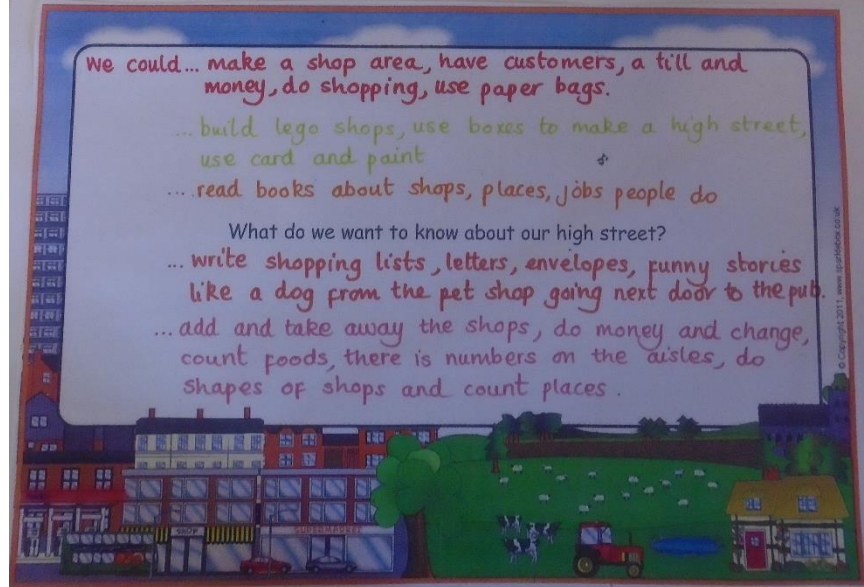 We could... make a shop area, have customers, a till and
money, do shopping, use paper bags.
... build lego shops, use boxes to make a high street,
use card and paint
... read books about shops, places, jobs people do
What do we want to know about our high street?
... write shopping lists, letters, envelopes, funny stories
like a dog from the pet shop going next door to the pub.
... add and take away the shops, do money and change,
count foods, there is numbers on the aisles, do
shapes of shops and count places.
© Copyright 2011, www.sparklebox.co.uk
SHOP
SUPERMARKET